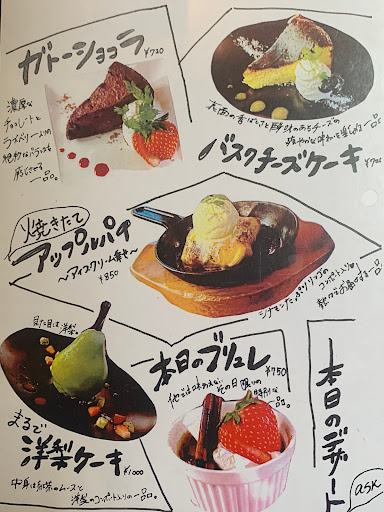 ガトーショコラ ¥720
濃厚な
チョコレートと
ラズベリーソースの
絶妙なバランスを
感じさせる
一品。
バスクチーズケーキ ¥700
表面の香ばしさと
チーズの
一品
焼きたて
アップルパイ
〜アイスクリーム乗せ〜
¥850
シナモンたっぷりリンゴの
コンポート入りの
熱々をお届けする一品
見た目は洋梨。
まるで
洋梨ケーキ ¥1000
中身は紅茶のムースと
洋梨のコンポート入りの一品。
本日のブリュレ ¥750
他では味わえない
その日限りの
特別な
一品。
本日のデザート
ask